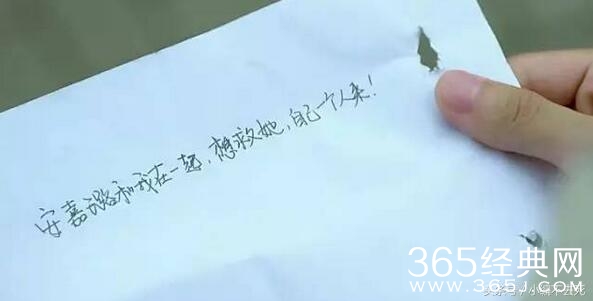 安嘉璐和我在一起，想救她，自己一个人来！
365经典网
WWW.365J.COM